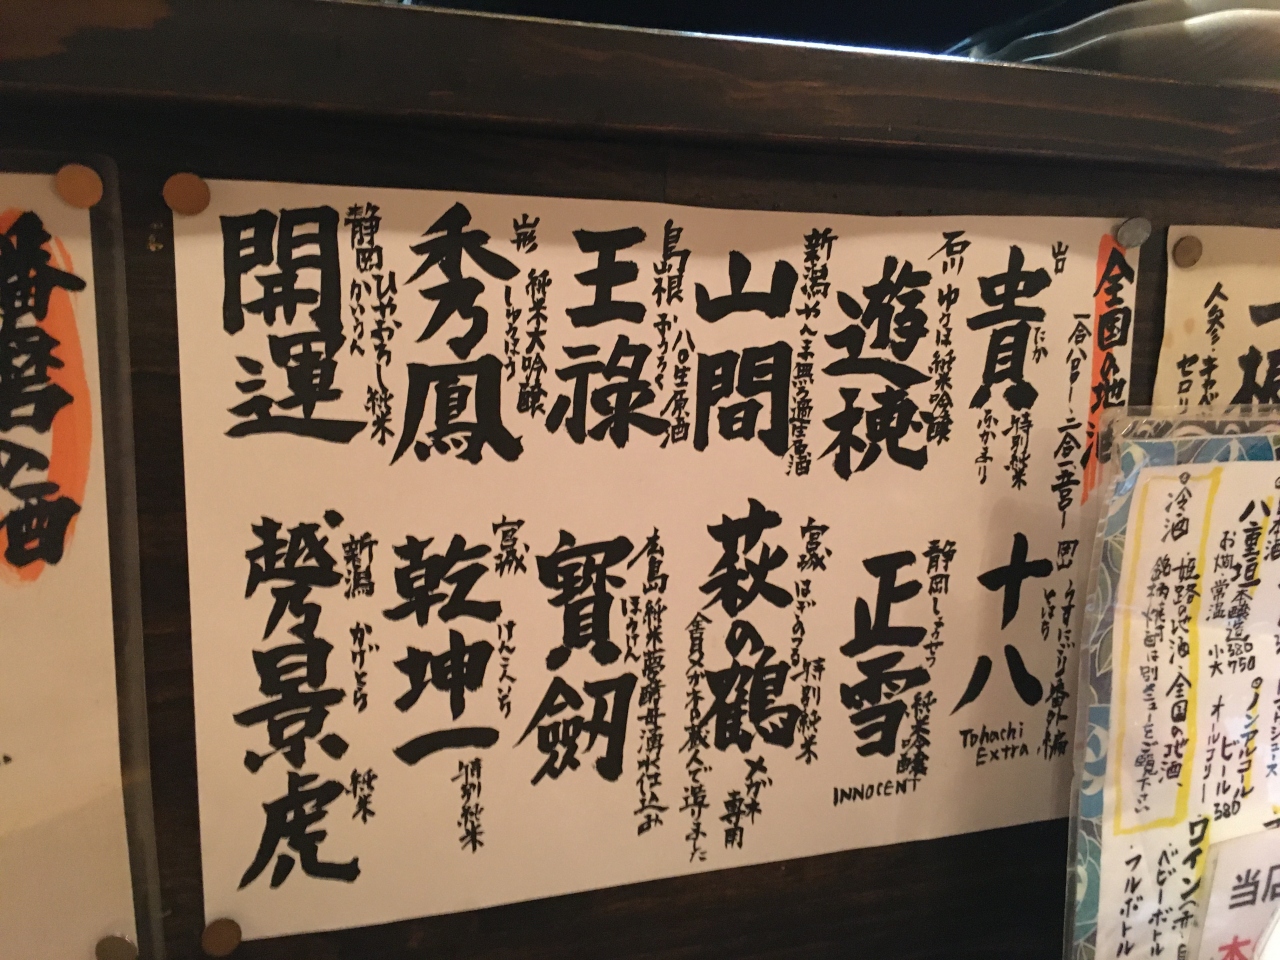 全国の地酒
一合八八〇ー 二合一五五〇ー
山口
貴
たか
特別純米
ふかまり
石川 ゆうほ 純米吟醸
遊穂
新潟 やんま 無ろ過生原酒
山間
島根 おうろく 八〇生原酒
王祿
山形 純米大吟醸
しゅうほう
秀鳳
静岡 ひやおろし純米
かいうん
開運
岡山 うすにごり番外編
とはち
十八
Tohachi
Extra
静岡 しょうせつ 純米吟醸
正雪
INNOCENT
宮城 はぎのつる 特別純米
萩の鶴
メガネ専用
全員メガネの蔵人で造りました
広島 純米 夢酵母湧水仕込み
ほうけん
寳劔
宮城 けんこんいち 特別純米
乾坤一
新潟 かげとら 純米
越乃景虎
播磨の酒
人参・キャベ
セロリ
八重垣 本醸造 380 750
お燗・常温 小 大
ノンアルコール
ビール 380
オールフリー
冷酒
・姫路の地酒・全国の地酒、
銘柄焼酎は別メニューをご覧下さい
ワイン
・ベビーボトル
・フルボトル
当店